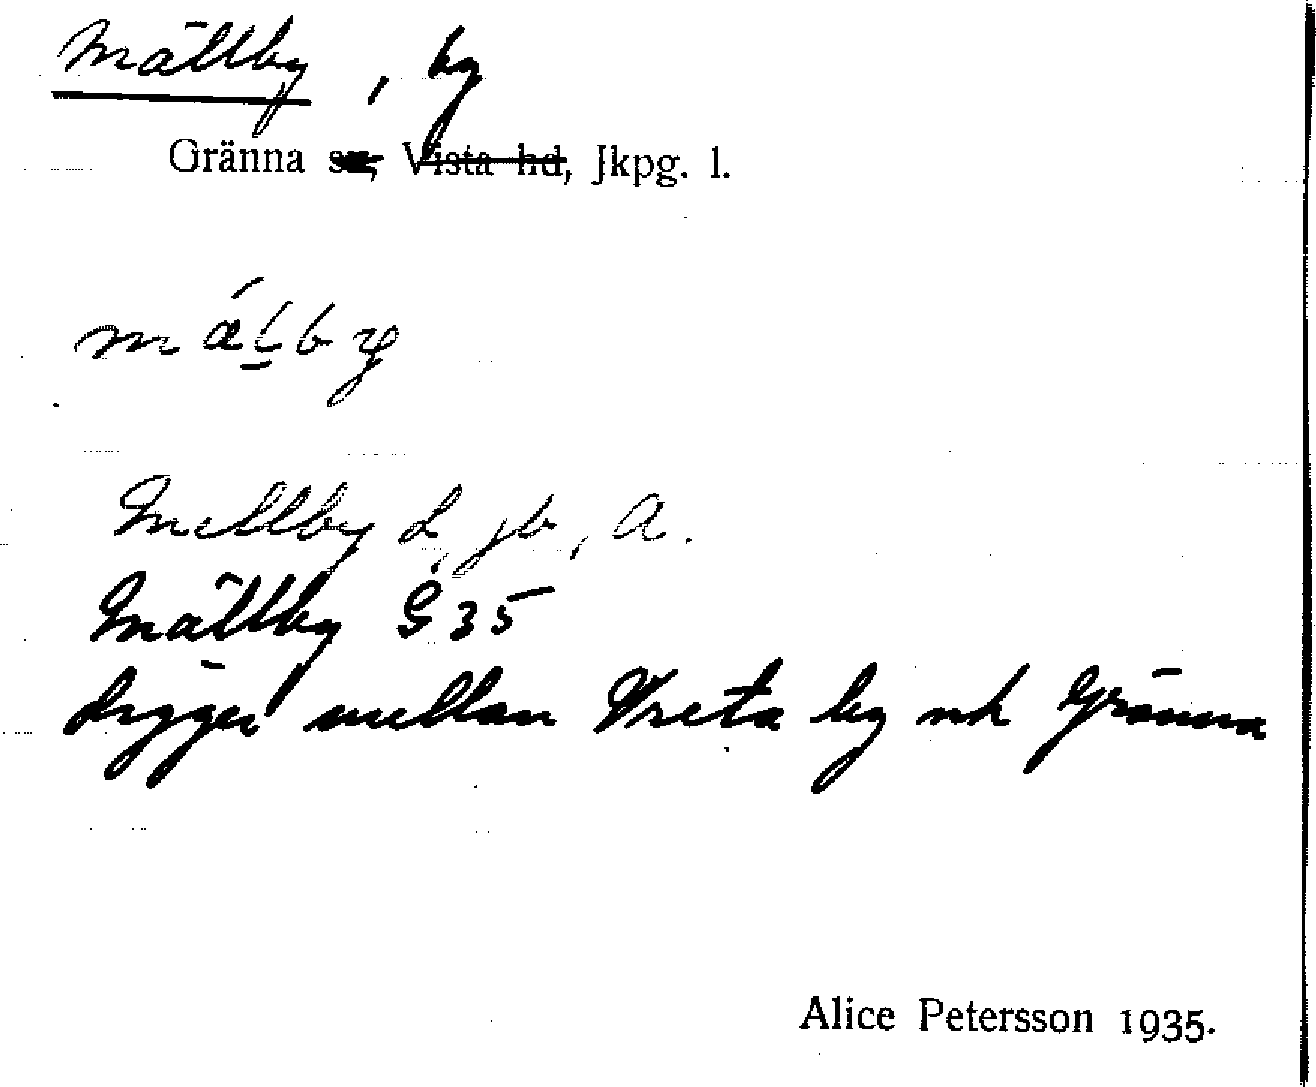 Mällby, by
Gränna sn, Vista hd, Jkpg. l.
mǽlby
Mellby L, jb, A.
Mällby G 35
Ligger mellan Vreta by och Gränna
Alice Petersson 1935.